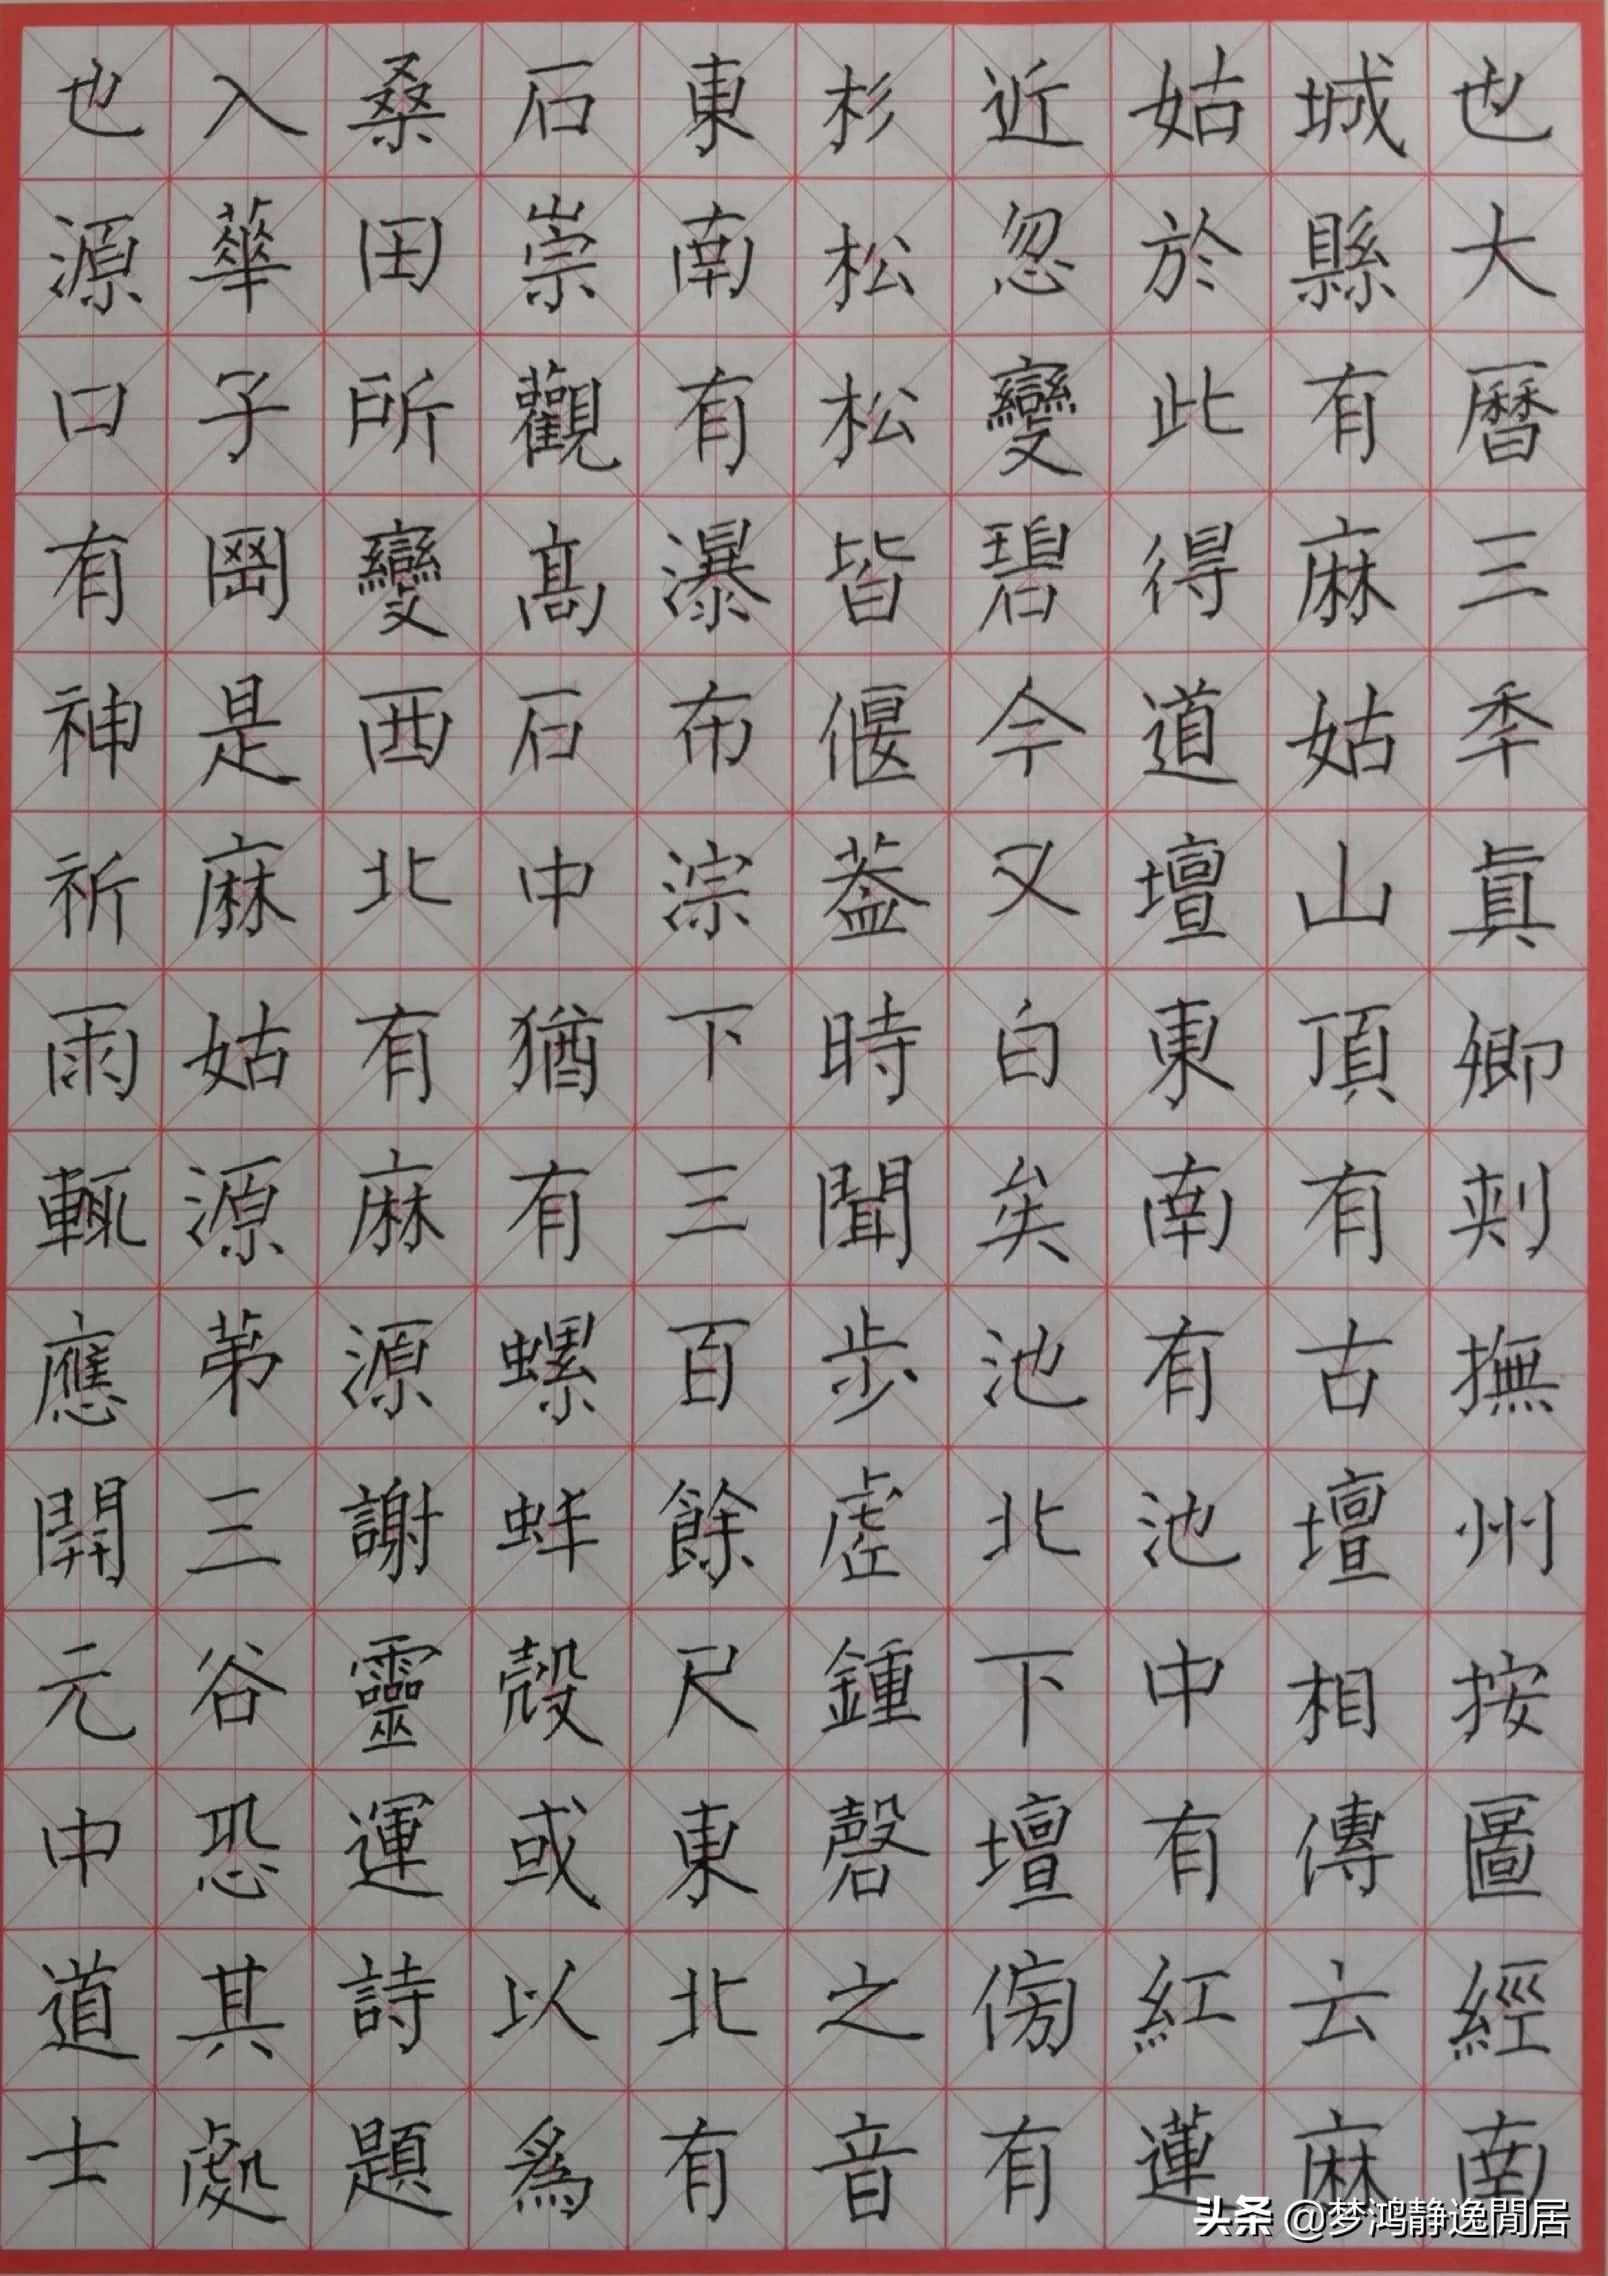 也大曆三秊眞卿刺撫州按圖經南
城縣有麻姑山頂有古壇相傳云麻
姑於此得道壇東南有池中有紅蓮
近忽變碧今又白矣池北下壇傍有
杉松松皆偃蓋時聞步虛鍾磬之音
東南有瀑布淙下三百餘尺東北有
石崇觀高石中猶有螺蚌殼或以爲
桑田所變西北有麻源謝靈運詩題
入華子岡是麻姑源苐三谷恐其處
也源口有神祈雨輒應開元中道士
头条 @梦鸿静逸閒居